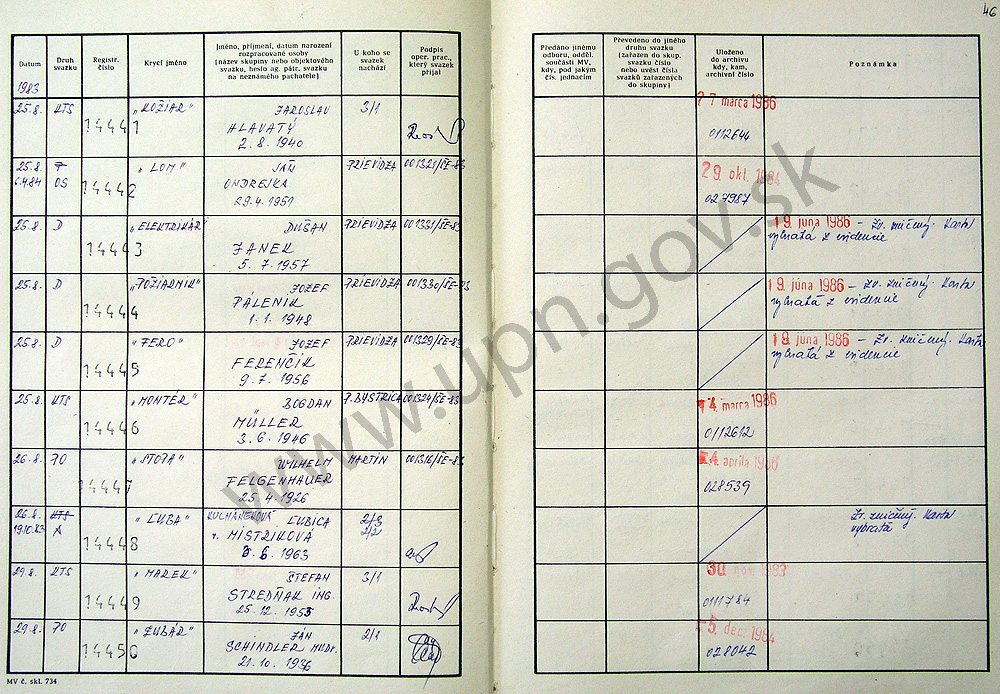 46
Datum
Druh svazku
Registr. číslo
Krycí jméno
Jméno, příjmení, datum narození rozpracované osoby (název skupiny nebo objektového svazku, heslo ag. pátr. svazku na neznámého pachatele)
U koho se svazek nachází
Podpis oper. prac., který svazek přijal
Předáno jinému odboru, odděl. součásti MV, kdy, pod jakým čís. jednacím
Převedeno do jiného druhu svazku (zařazen do skup. svazku číslo nebo uvést čísla svazků zařazených do skupiny)
Uloženo do archivu kdy, kam, archivní číslo
Poznámka
1983
25.8. KTS 14441 "KOŽIAR" JAROSLAV 3/1
HLAVATÝ
2. 8. 1940
27 marca 1986
0112644
25.8. "LOM" JÁN PRIEVIDZA 001321/ŠE-83
6.4.84 OS 14442 ONDREJKA
29.4. 1951
29. okt. 1984
027987
25.8. D 14443 "ELEKTRIKÁR" DUŠAN PRIEVIDZA 001331/ŠE-83
JANEK
5. 7. 1957
19. júna 1986 - Zv. zničený. Karta
vybratá z evidencie
25.8. D 14444 "POŽIARNIK" JOZEF PRIEVIDZA 001330/ŠE-83
PÁLENIK
1. 1. 1948
19. júna 1986 - Zv. zničený. Karta
vybratá z evidencie
25.8. D 14445 "FERO" JOZEF PRIEVIDZA 001329/ŠE-83
FERENČÍK
9. 7. 1956
19. júna 1986 - Zv. zničený. Karta
vybratá z evidencie
25.8. KTS 14446 "MONTÉR" BOGDAN P. BYSTRICA 001324/ŠE-83
MÜLLER
3. 6. 1946
14. marca 1986
0112612
26.8. PO 14447 "STOPA" WILHELM MARTIN 001316/ŠE-83
FELGENHAUER
25. 4. 1926
14. apríla 1986
028539
26.8. KTS 14448 "ĽUBA" ĽUBICA 2/3
19.10.83 A r. MISTRÍKOVÁ 2/2
6. 1963
Zv. zničený. Karta
vybratá
29.8. KTS 14449 "MAREK" ŠTEFAN 3/1
STREDŇAK ING.
25. 12. 1953
30. nov. 1983
0111784
29.8. PO 14450 "ZUBÁR" JÁN 2/1
SCHINDLER MUDr.
21. 10. 1936
5. dec. 1984
028042
MV č. skl. 734
www.upn.gov.sk